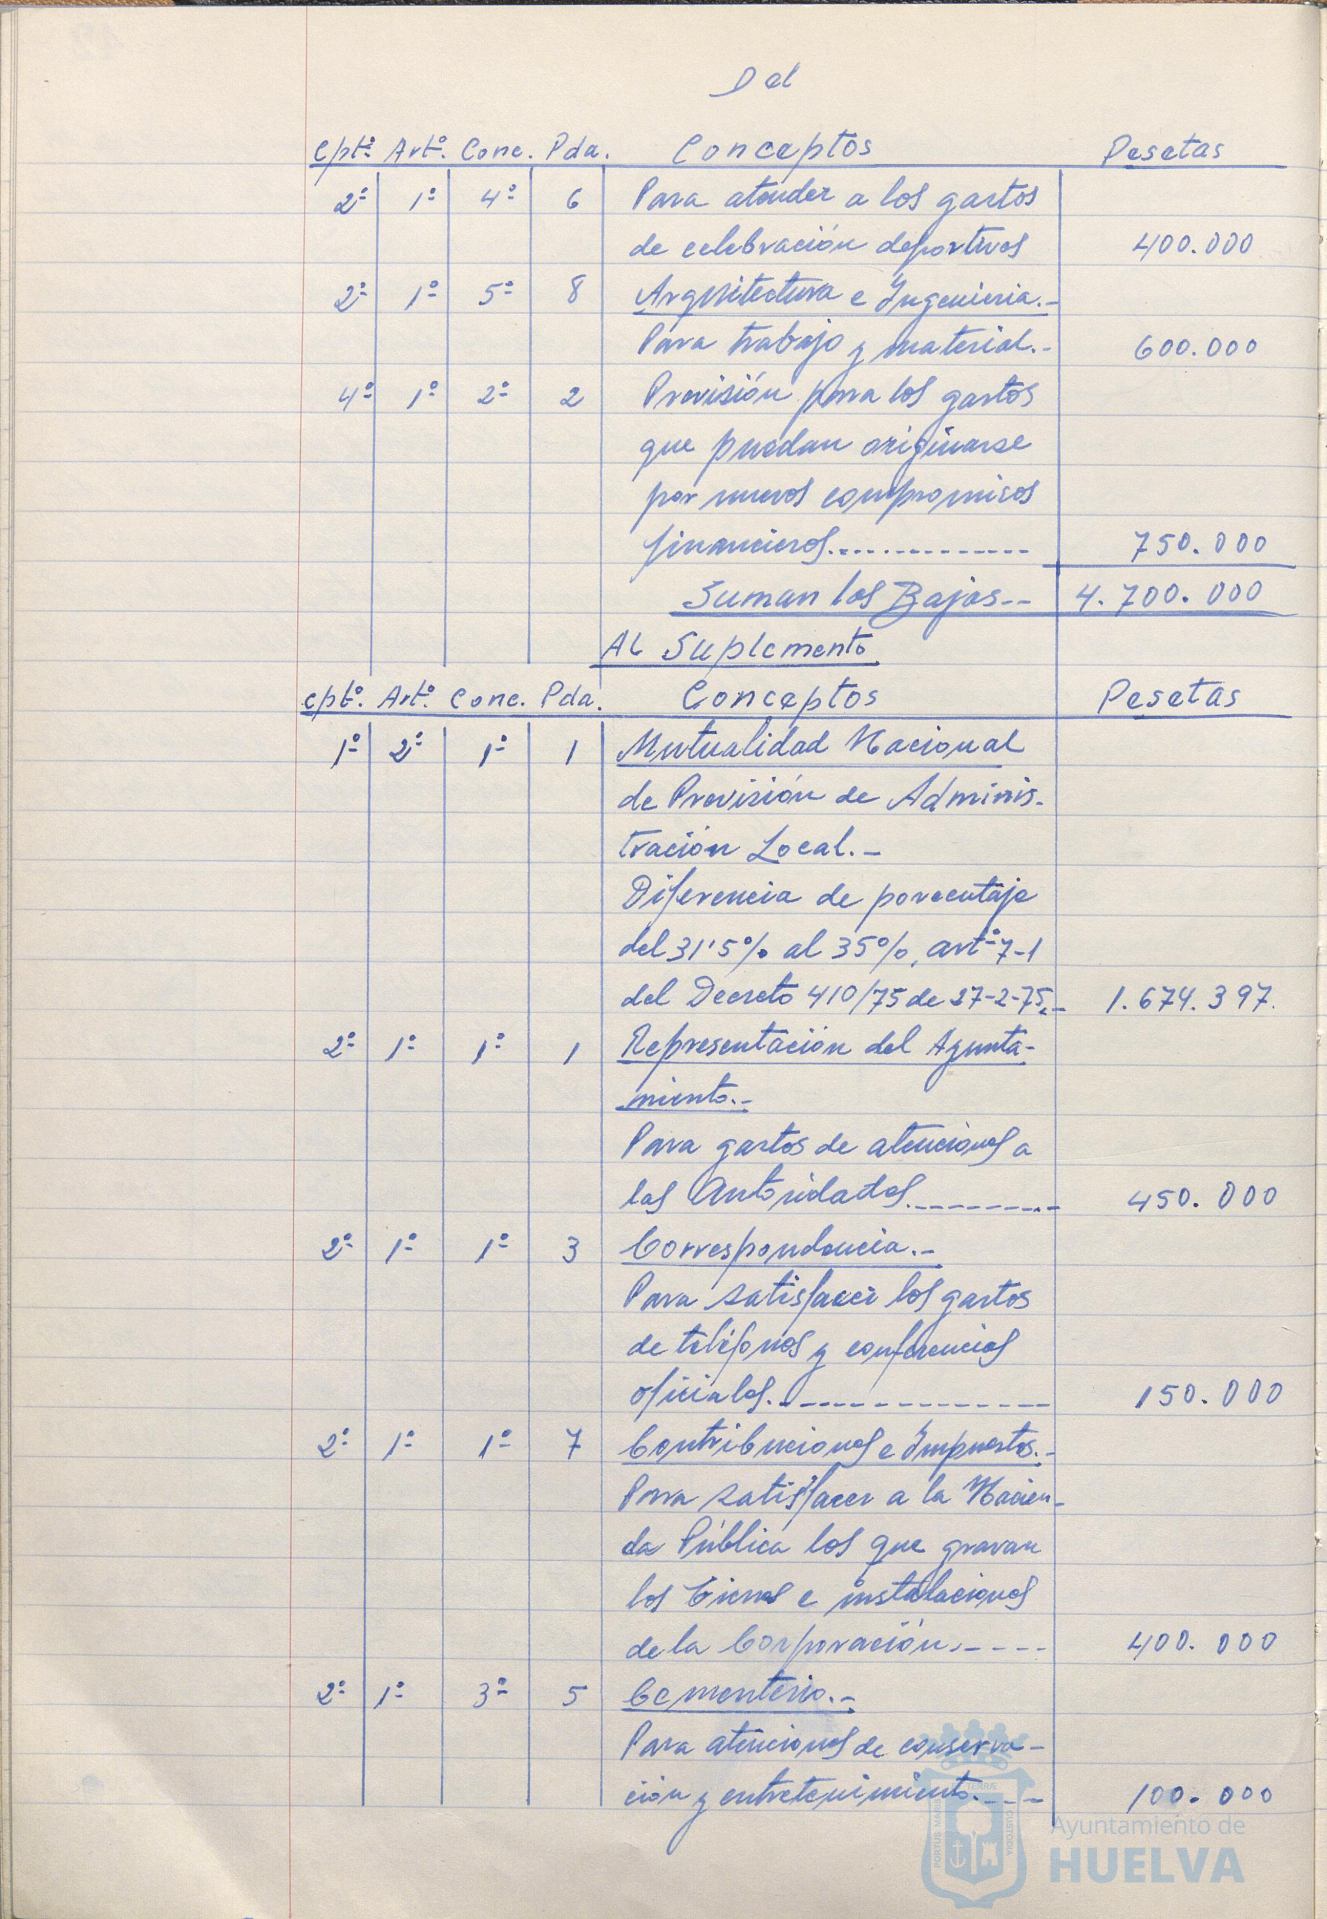 Del
Cptº. Artº. Conc. Pda. Conceptos Pesetas
2º 1º 4º 6 Para atender a los gastos
de celebración deportivos 400.000
2º 1º 5º 8 Arquitectura e Ingenieria.-
Para trabajo y material.- 600.000
4º 1º 2º 2 Previsión para los gastos
que puedan originarse
por nuevos compromisos
financieros.............. 750.000
Suman las Bajas-- 4.700.000
AL Suplemento
Cptº. Artº. Conc. Pda. Conceptos Pesetas
1º 2º 1º 1 Mutualidad Nacional
de Previsión de Adminis-
tración Local.-
Diferencia de porcentaje
del 31'5% al 35%, artº 7-1
del Decreto 410/75 de 27-2-75.- 1.674.397.
2º 1º 1º 1 Representación del Ayunta-
miento.-
Para gastos de atenciones a
las Autoridades.--------- 450.000
2º 1º 1º 3 Correspondencia.-
Para satisfacer los gastos
de teléfonos y conferencias
oficiales.-------------- 150.000
2º 1º 1º 7 Contribuciones e Impuestos.-
Para satisfacer a la Hacien-
da Pública los que gravan
los bienes e instalaciones
de la Corporación.---- 400.000
2º 1º 3º 5 Cementerio.-
Para atenciones de conserva-
ción y entretenimiento.---- 100.000
PORTUS MARIS ET TERRAE CUSTODIA
Ayuntamiento de
HUELVA